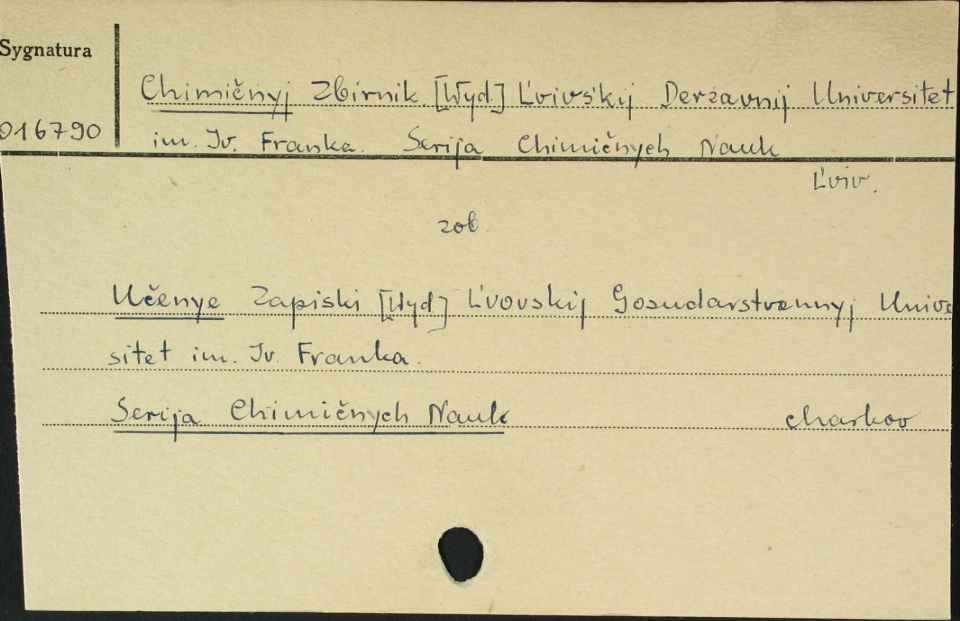 Sygnatura
016790
Chimičnyj Zbirnik [Wyd.] L'vivs'kij Deržavnij Universitet
im. Iv. Franka. Serija Chimičnych Nauk
L'viv.
zob.
Učenye Zapiski [Wyd] L'vovskij Gosudarstvennyj Unive
sitet im. Iv. Franka.
Serija Chimičnych Nauk charkov